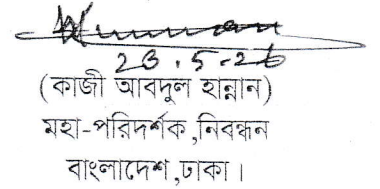 23.5-26
(কাজী আবদুল হান্নান)
মহা-পরিদর্শক,নিবন্ধন
বাংলাদেশ,ঢাকা।